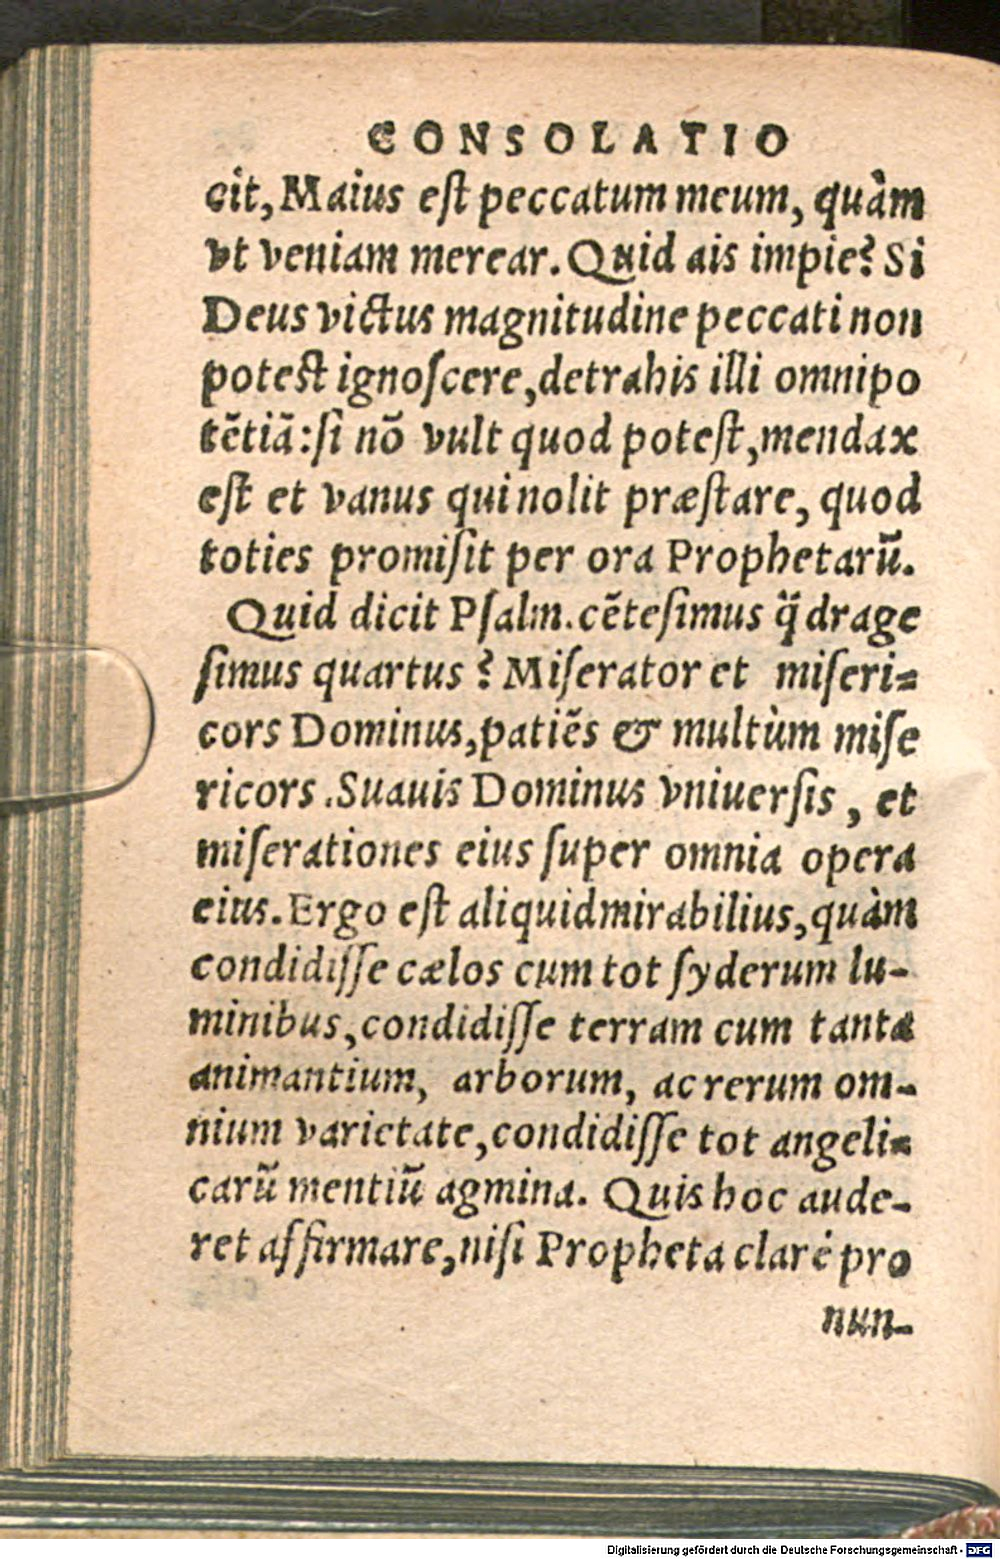 CONSOLATIO
cit, Maius eſt peccatum meum, quàm
vt veniam merear. Quid ais impie? Si
Deus victus magnitudine peccati non
poteſt ignoſcere, detrahis illi omnipo
tētiā: ſi nō vult quod poteſt, mendax
eſt et vanus qui nolit præſtare, quod
toties promiſit per ora Prophetarū.
Quid dicit Pſalm. cēteſimus q̈̄drage
ſimus quartus? Miſerator et miſeri=
cors Dominus, patiēs & multùm miſe
ricors. Suauis Dominus vniuerſis, et
miſerationes eius ſuper omnia opera
eius. Ergo eſt aliquid mirabilius, quàm
condidiſſe cælos cum tot ſyderum lu-
minibus, condidiſſe terram cum tanta
animantium, arborum, ac rerum om-
nium varietate, condidiſſe tot angeli=
carū mentiū agmina. Quis hoc aude-
ret aſfirmare, niſi Propheta claré pro
nun-
Digitalisierung gefördert durch die Deutsche Forschungsgemeinschaft - DFG